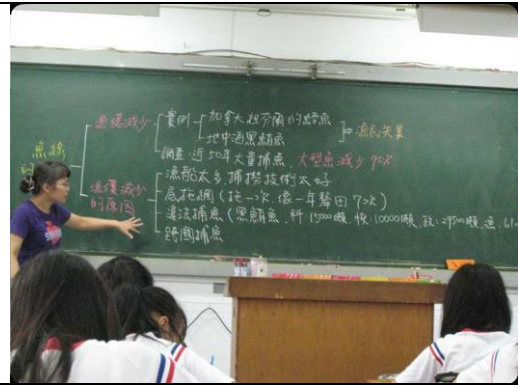 魚線
的
漁獲減少
實例
加拿大紐芬蘭的鱈魚
地中海黑鮪魚
⇒漁民失業
調查:近50年大量捕魚,大型魚減少90%
漁獲減少
的原因
漁船太多,捕撈技術太好
底拖網(拖一次,像一年犂田7次)
違法捕魚(黑鮪魚、科15000噸、快10000噸,政:29500噸,造:61
跨國捕魚